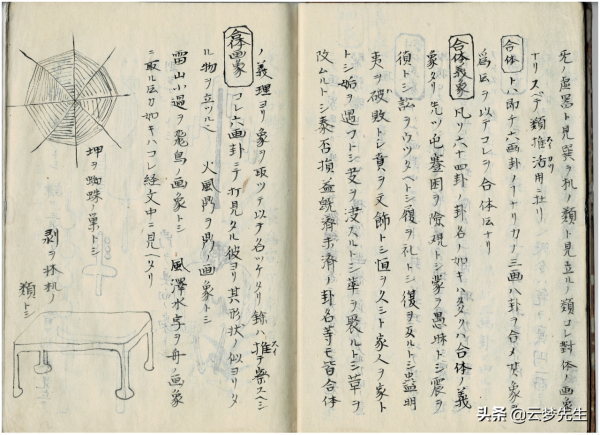 兌ノ虚器ト見巽ヲ机ノ類ト見立ルノ類コレ對体ノ画象
ナリスベテ類推活用ニ在リ
合体 トハ即チ六画卦ノナリカノ三画八卦ヲ合メ其象ヲ
爲ス法ヲ以テコレヲ合体伝ナリ
合体義象 凡ソ六十四卦ノ卦名ノ如キハ合体ノ義
象タリ先ツ屯蹇困ヲ險現トシ蒙ヲ愚昧トシ震ヲ
トシ訟ヲウツタヘトシ履ヲ礼トシ復ヲ反ルトシ明
夷ヲ破敗トシ賁ヲ文飾トシ恒ヲ久シト家人ヲ家ト
トシ姤ヲ遇フトシ トシ萃ヲ聚ルトシ革ヲ
改ムルトシ泰否損益既濟未濟ノ卦名等モ皆合体
ノ義理ヨリ象ヲ取ツテ以テ名ツケタリ餘ハ推テ察スヘシ
合体画象 コレ六画卦ニテ打見タル彼ヨリ其形状ノ似ヨリタ
ル物ヲ立ツルヘ 火風鼎ヲ鼎ノ画象トシ
雷山小過ヲ飛鳥ノ画象トシ 風澤中孚ヲ舟ノ画象
ニ取ル伝カ如キハコレ経文中ニ見ヘタリ
坤ヲ蜘蛛ノ巣トシ
剥ヲ床机ノ
類トシ
头条 @云梦先生